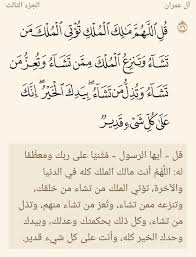 آل عمران
الجزء الثالث
قُلِ ٱللَّهُمَّ مَٰلِكَ ٱلْمُلْكِ تُؤْتِي ٱلْمُلْكَ مَن
تَشَآءُ وَتَنزِعُ ٱلْمُلْكَ مِمَّن تَشَآءُ وَتُعِزُّ مَن
تَشَآءُ وَتُذِلُّ مَن تَشَآءُ بِيَدِكَ ٱلْخَيْرُ إِنَّكَ
عَلَىٰ كُلِّ شَىْءٍ قَدِيرٌ ٢٦
قل - أيها الرسول - مُثنيًا على ربك ومعظِّمًا
له: اللَّهُمَّ أنت مالك الملك كله في الدنيا
والآخرة، تؤتي الملك من تشاء من خلقك،
وتنزعه ممن تشاء، وتُعز من تشاء منهم، وتذل
من تشاء، كل ذلك بحكمتك وعدلك، وبيدك
وحدك الخير كله، وأنت على كل شيء قدير.